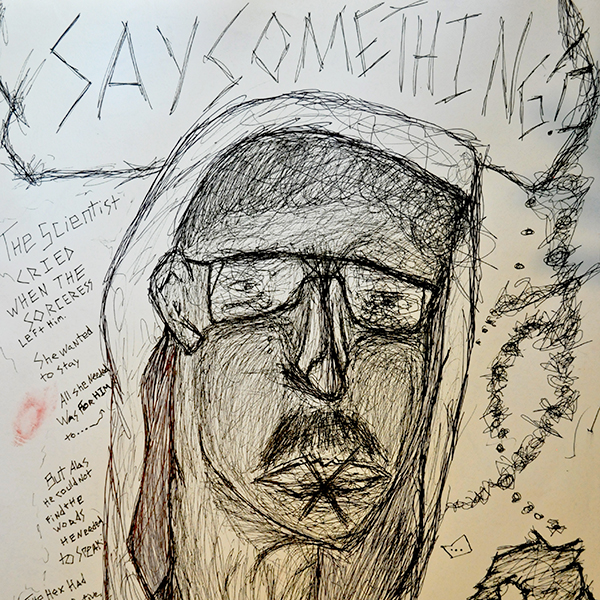 SAY SOMETHING!
The Scientist
CRIED
WHEN THE
SORCERESS
Left Him.
She wanted
to stay
All she Needed
Was FOR HIM
to......
But Alas
He could Not
FIND THE
WORDS
HE Needed
to SPEAK
The HEX HAD